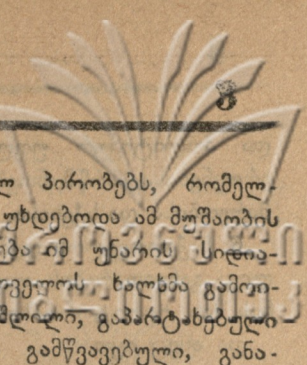 3
ლ პირობებს, რომელ-
უხდებოდა ამ მუშაობის
ება იმ უნარის სიდია-
რველოს ხალხმა გამოი-
შლილი, გაპარტახებული
გამწვავებული, განა-